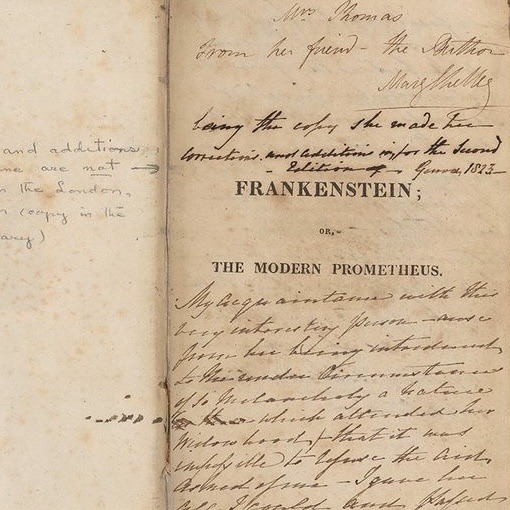 and additions
ne are not →
n the London
n (copy in the
rary)
Mrs Thomas
From her friend - the Author
Mary Shelley
being the copy she made her
corrections and additions in, for the second
- Edition of - Genoa, 1823 -
FRANKENSTEIN;
OR,
THE MODERN PROMETHEUS.
My acquaintance with this
very interesting person - arose
from her being introduced
to me under circumstances
of so melancholy a nature
which attended her
widowhood, that it was
impossible to refuse the aid
asked of me - I gave her
all I could and passed